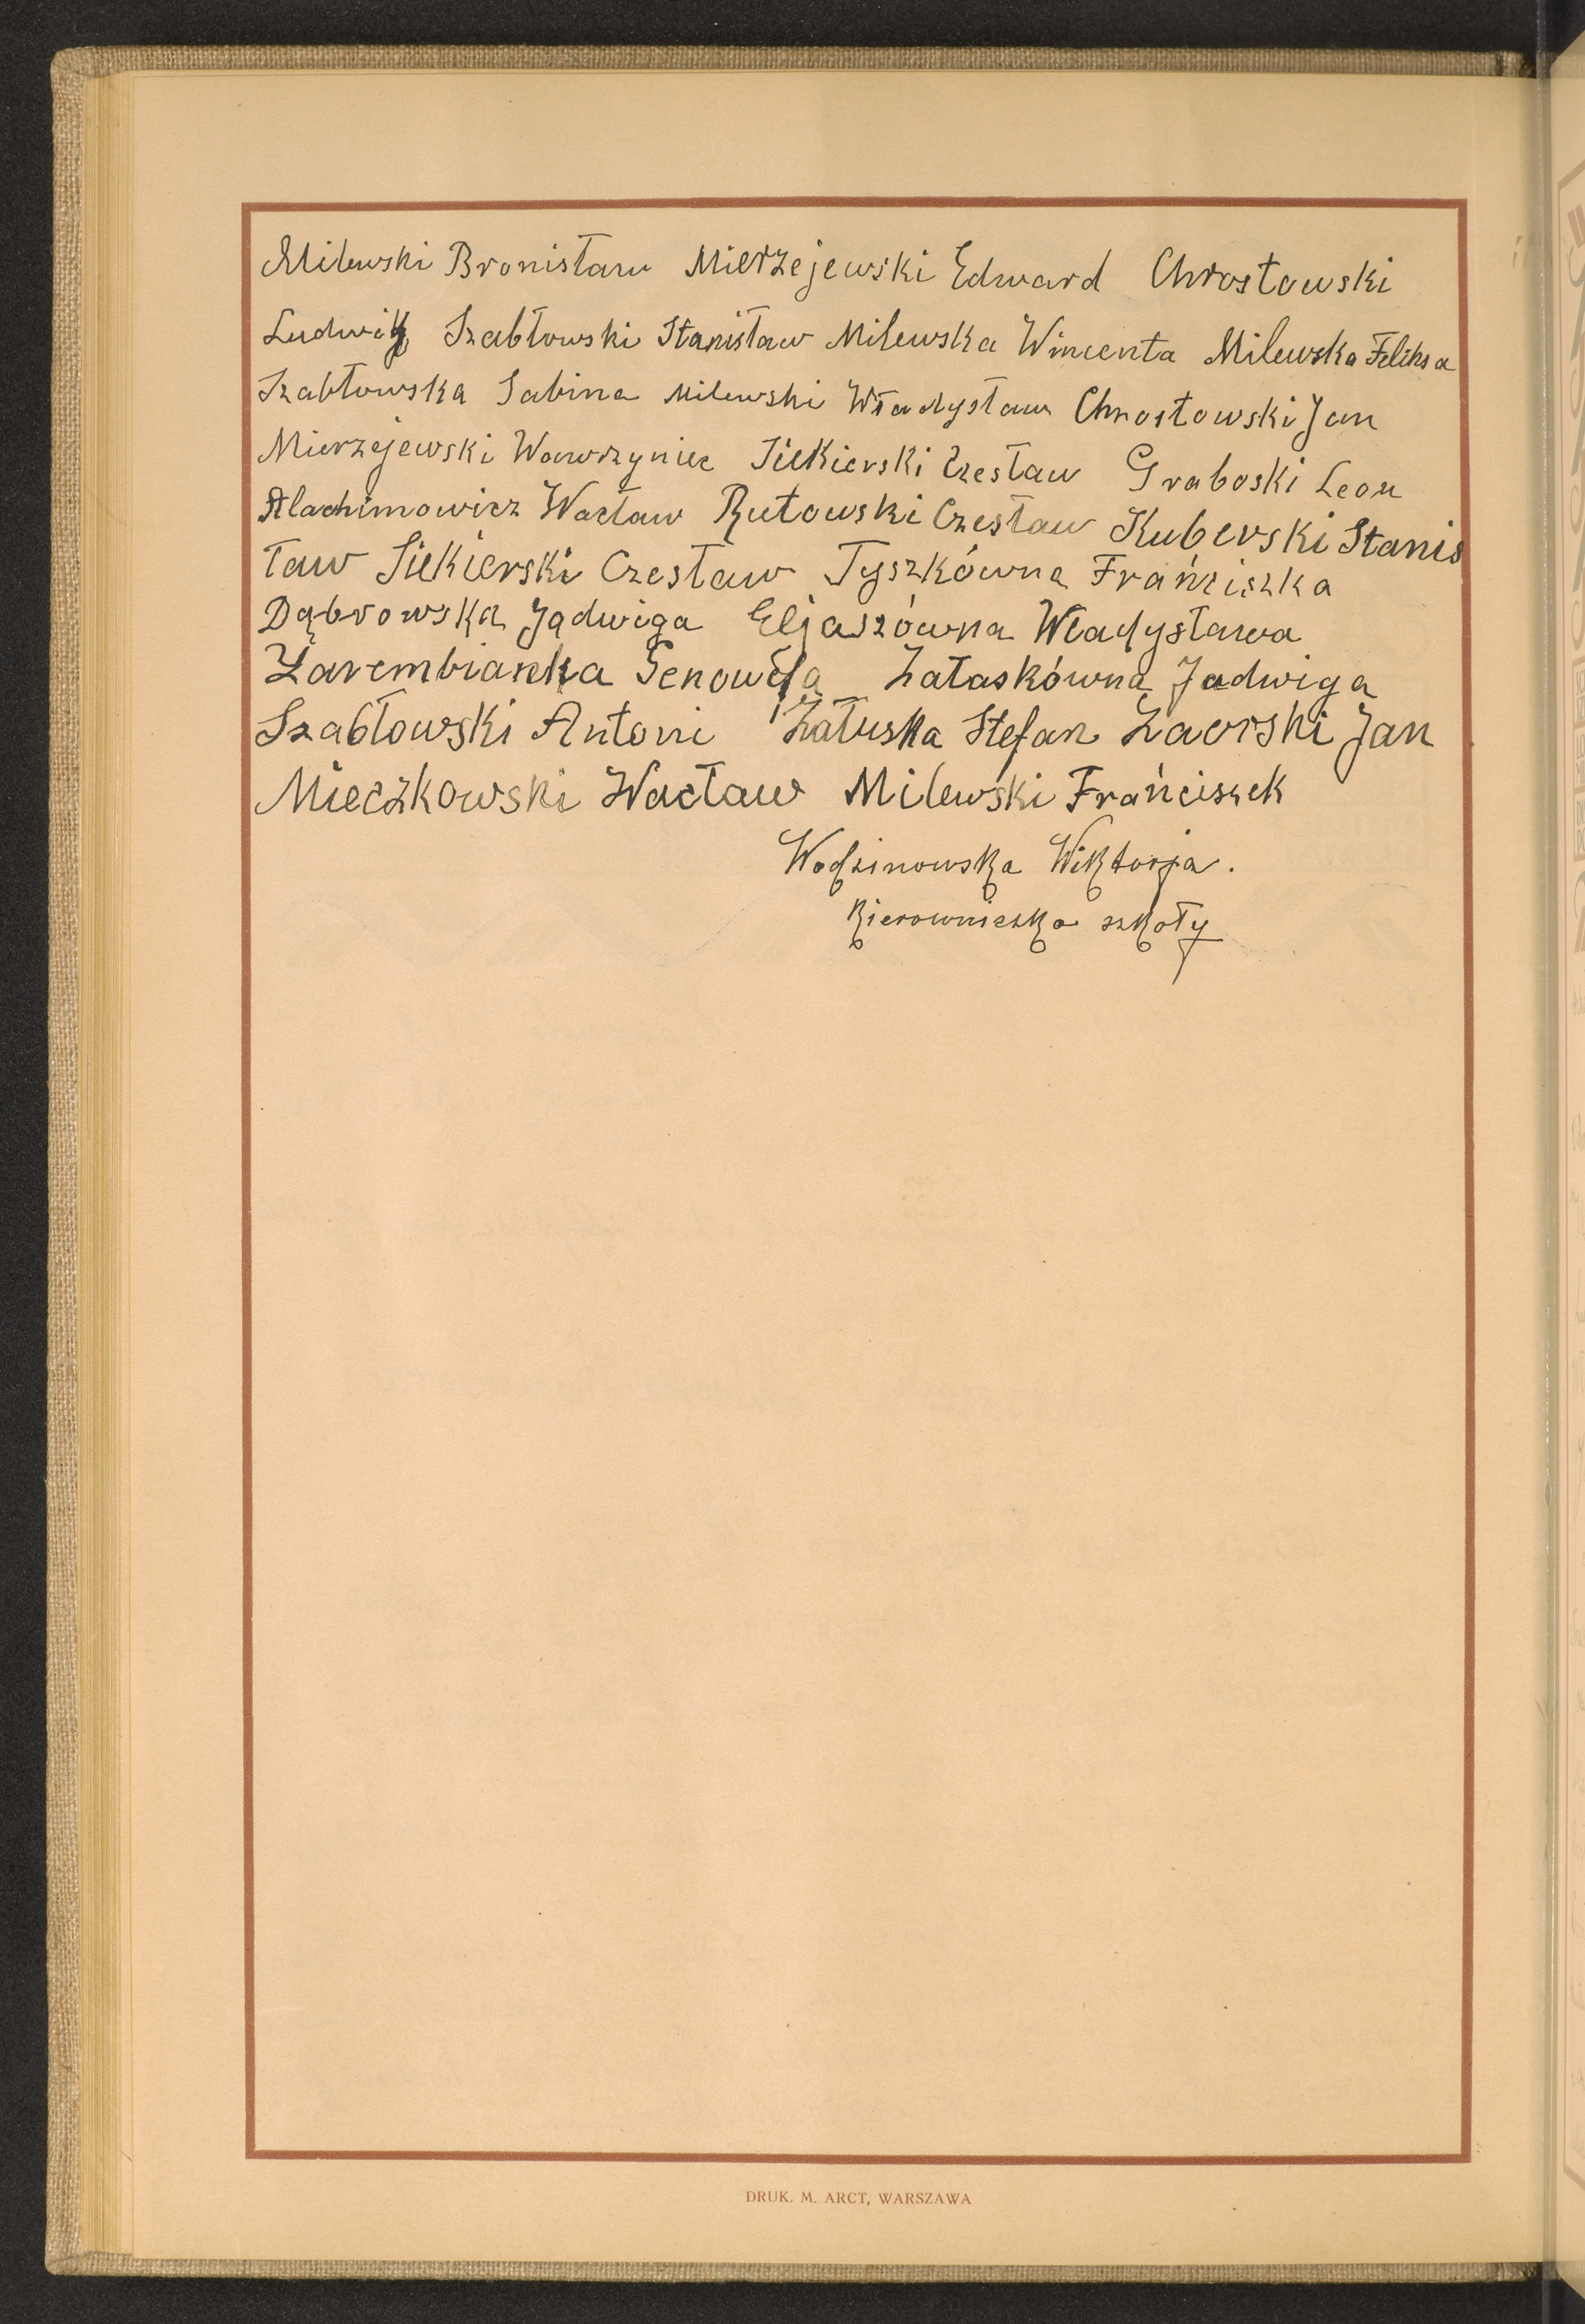 Milewski Bronisław Mierzejewski Edward Chrostowski
Ludwik Szabłowski Stanisław Milewska Wincenta Milewska Feliksa
Szabłowska Sabina Milewski Władysław Chrostowski Jan
Mierzejewski Wawrzyniec Siekierski Czesław Graboski Leon
Alachimowicz Wacław Rutowski Czesław Kuberski Stanis
ław Siekierski Czesław Tyszkówna Frańciszka
Dąbrowska Jadwiga Eljaszówna Władysława
Zarembianka Genowefa Załaskówna Jadwiga
Szabłowski Antoni Załuska Stefan Zaorski Jan
Mieczkowski Wacław Milewski Frańciszek
Wodzinowska Wiktorja.
Kierowniczka szkoły
DRUK. M. ARCT, WARSZAWA